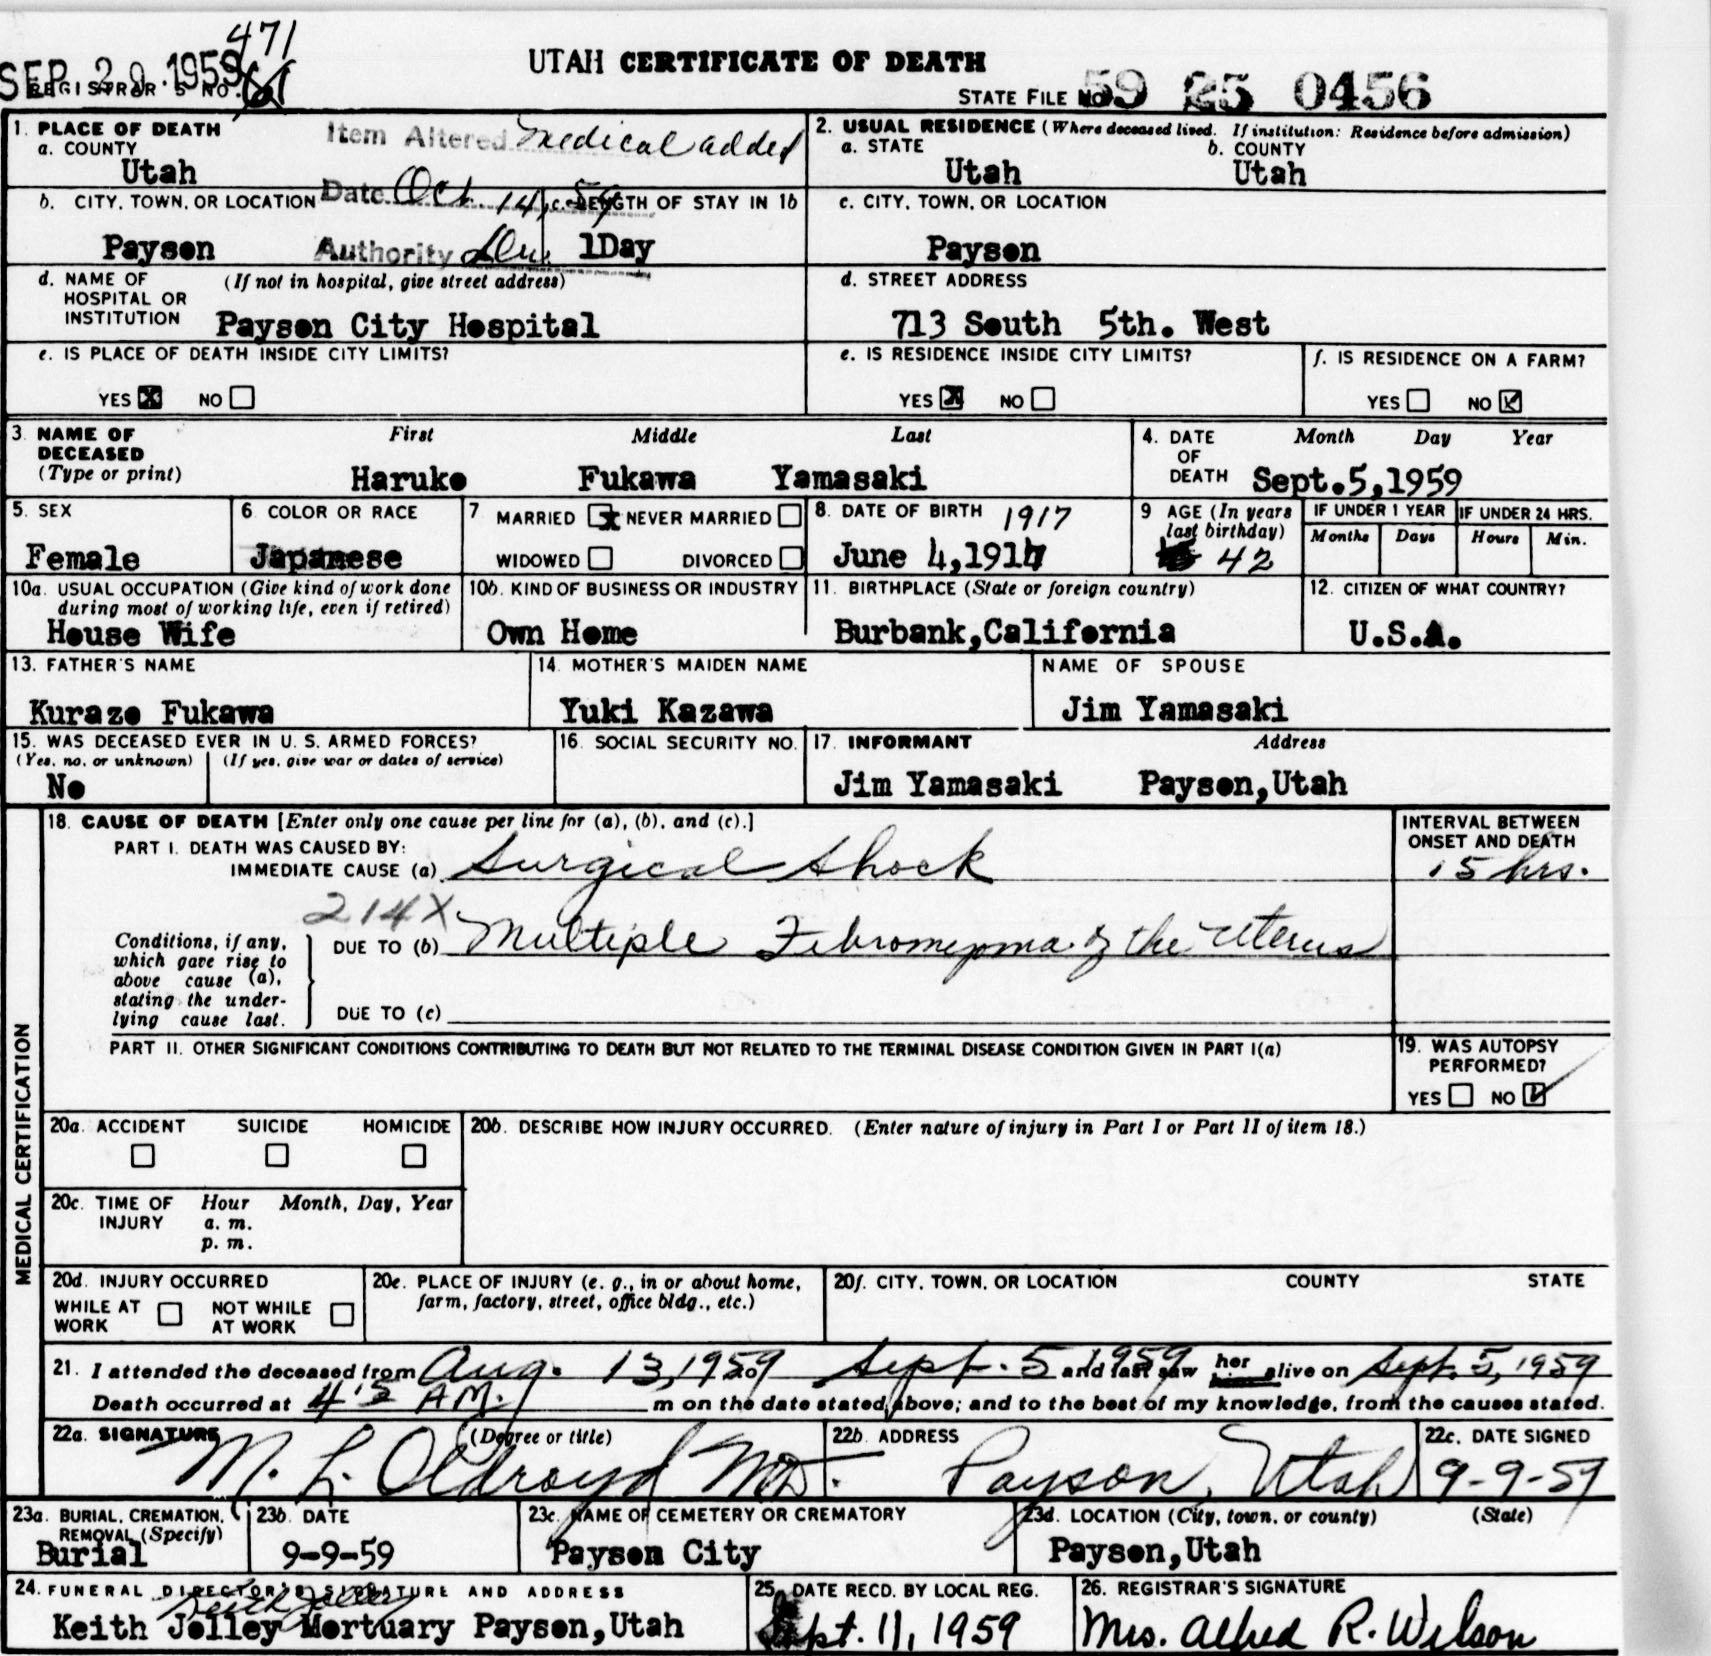 471
SEP 29 1959
REGISTRAR'S NO.
UTAH CERTIFICATE OF DEATH
STATE FILE NO. 59 25 0456
1. PLACE OF DEATH
a. COUNTY
Utah
Item Altered Medical added
Date Oct. 14, 59
Authority
2. USUAL RESIDENCE (Where deceased lived. If institution: Residence before admission)
a. STATE b. COUNTY
Utah Utah
b. CITY, TOWN, OR LOCATION
Payson
c. LENGTH OF STAY IN 1b
1Day
c. CITY, TOWN, OR LOCATION
Payson
d. NAME OF HOSPITAL OR INSTITUTION (If not in hospital, give street address)
Payson City Hospital
d. STREET ADDRESS
713 South 5th. West
e. IS PLACE OF DEATH INSIDE CITY LIMITS?
YES X NO
e. IS RESIDENCE INSIDE CITY LIMITS?
YES X NO
f. IS RESIDENCE ON A FARM?
YES NO
3. NAME OF DECEASED (Type or print)
First Middle Last
Haruko Fukawa Yamasaki
4. DATE OF DEATH Month Day Year
Sept.5,1959
5. SEX
Female
6. COLOR OR RACE
Japanese
7 MARRIED X NEVER MARRIED
WIDOWED DIVORCED
8. DATE OF BIRTH 1917
June 4,1917
9 AGE (In years last birthday)
42
IF UNDER 1 YEAR IF UNDER 24 HRS.
Months Days Hours Min.
10a. USUAL OCCUPATION (Give kind of work done during most of working life, even if retired)
House Wife
10b. KIND OF BUSINESS OR INDUSTRY
Own Home
11. BIRTHPLACE (State or foreign country)
Burbank,California
12. CITIZEN OF WHAT COUNTRY?
U.S.A.
13. FATHER'S NAME
Kurazo Fukawa
14. MOTHER'S MAIDEN NAME
Yuki Kazawa
NAME OF SPOUSE
Jim Yamasaki
15. WAS DECEASED EVER IN U. S. ARMED FORCES?
(Yes, no, or unknown) (If yes, give war or dates of service)
No
16. SOCIAL SECURITY NO.
17. INFORMANT Address
Jim Yamasaki Payson,Utah
MEDICAL CERTIFICATION
18. CAUSE OF DEATH [Enter only one cause per line for (a), (b), and (c).]
PART I. DEATH WAS CAUSED BY:
IMMEDIATE CAUSE (a) Surgical Shock
INTERVAL BETWEEN ONSET AND DEATH
15 hrs.
214X
Conditions, if any, which gave rise to above cause (a), stating the underlying cause last.
DUE TO (b) Multiple Fibromyoma of the Uterus
DUE TO (c)
PART II. OTHER SIGNIFICANT CONDITIONS CONTRIBUTING TO DEATH BUT NOT RELATED TO THE TERMINAL DISEASE CONDITION GIVEN IN PART I(a)
19. WAS AUTOPSY PERFORMED?
YES NO
20a. ACCIDENT SUICIDE HOMICIDE
20b. DESCRIBE HOW INJURY OCCURRED. (Enter nature of injury in Part I or Part II of item 18.)
20c. TIME OF INJURY Hour Month, Day, Year
a. m.
p. m.
20d. INJURY OCCURRED
WHILE AT WORK NOT WHILE AT WORK
20e. PLACE OF INJURY (e. g., in or about home, farm, factory, street, office bldg., etc.)
20f. CITY, TOWN, OR LOCATION COUNTY STATE
21. I attended the deceased from Aug. 13, 1959 Sept. 5 1959 and last saw her alive on Sept. 5, 1959
Death occurred at AM. m on the date stated above; and to the best of my knowledge, from the causes stated.
22a. SIGNATURE (Degree or title)
M. L. Oldroyd MD.
22b. ADDRESS
Payson, Utah
22c. DATE SIGNED
9-9-59
23a. BURIAL, CREMATION, REMOVAL (Specify)
Burial
23b. DATE
9-9-59
23c. NAME OF CEMETERY OR CREMATORY
Payson City
23d. LOCATION (City, town, or county) (State)
Payson,Utah
24. FUNERAL DIRECTOR'S SIGNATURE AND ADDRESS
Keith Jolley
Keith Jolley Mortuary Payson,Utah
25. DATE RECD. BY LOCAL REG.
Sept. 11, 1959
26. REGISTRAR'S SIGNATURE
Mrs. Alfred R. Wilson